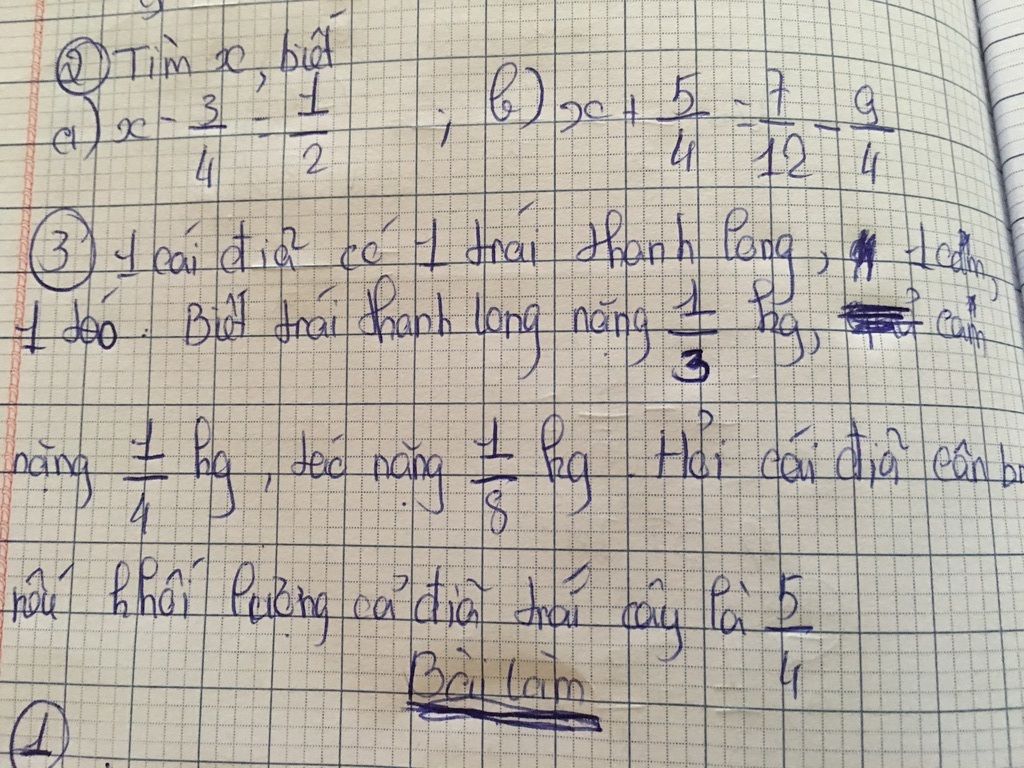 ② Tìm x, biết
a) x - 3/4 = 1/2 ; b) x + 5/4 = 7/12 - 9/4
③ 1 cái đĩa có 1 trái thanh long, 1 cam,
1 táo. Biết trái thanh long nặng 1/3 kg, cam
nặng 1/4 kg, táo nặng 1/8 kg. Hỏi cái đĩa cân
nếu khối lượng cả đĩa trái cây là 5/4
Bài làm
①